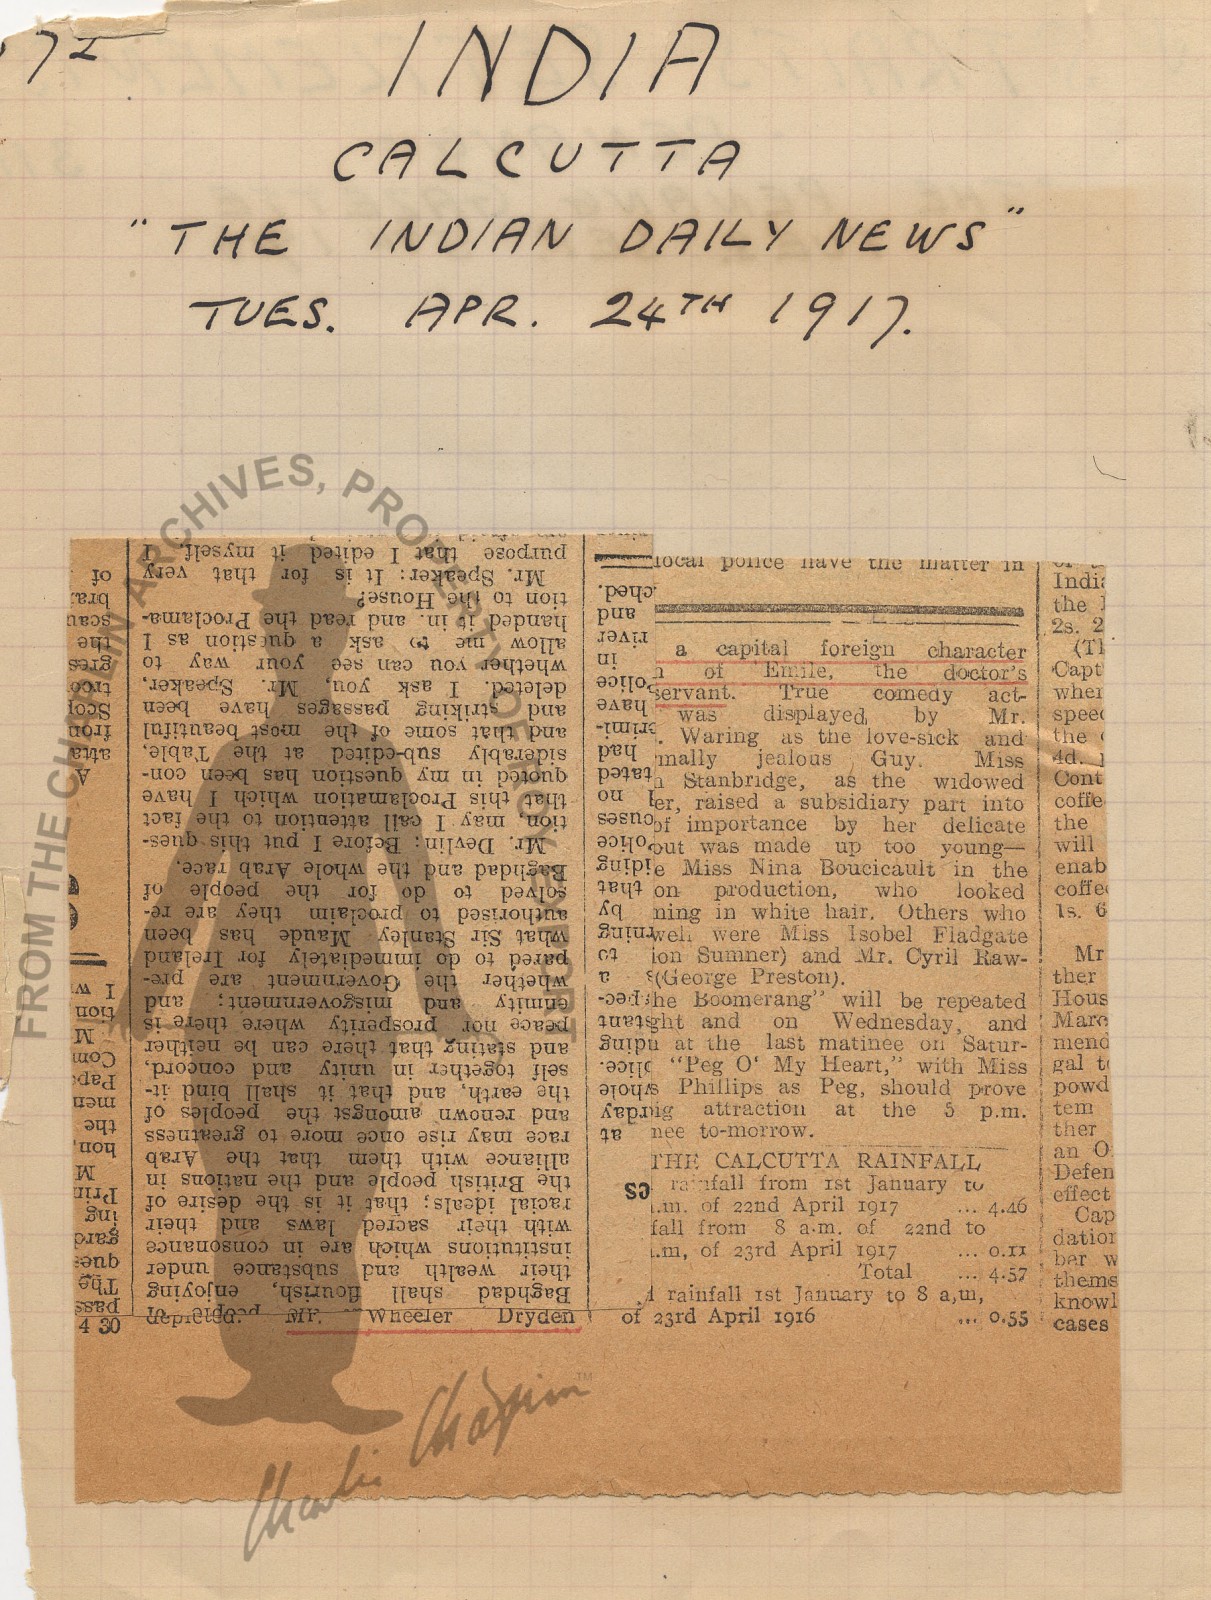 INDIA
CALCUTTA
"THE INDIAN DAILY NEWS"
TUES. APR. 24TH 1917.
FROM THE CHAPLIN ARCHIVES, PROPERTY OF ROY EXPORT
purpose that I edited it myself. I
Mr. Speaker: It is for that very
tion to the House?
handed it in. and read the Proclama-
allow me to ask a question as I
whether you can see your way to
deleted. I ask you, Mr. Speaker,
and striking passages have been
and that some of the most beautiful
siderably sub-edited at the Table,
quoted in my question has been con-
that this Proclamation which I have
tion, may I call attention to the fact
Mr. Devlin: Before I put this ques-
Baghdad and the whole Arab race.
solved to do for the people of
authorised to proclaim they are re-
what Sir Stanley Maude has been
pared to do immediately for Ireland
whether the Government are pre-
enmity and misgovernment; and
peace nor prosperity where there is
and stating that there can be neither
self together in unity and concord,
the earth, and that it shall bind it-
and renown amongst the peoples of
race may rise once more to greatness
alliance with them that the Arab
the British people and the nations in
racial ideals; that it is the desire of
with their sacred laws and their
institutions which are in consonance
their wealth and substance under
Baghdad shall flourish, enjoying
Mr. Wheeler Dryden
of
the
A
I
tion
M
the
M
ing
The
4 30
and
river
in
have
had
no
that
by
to
a
at
local police have the matter in
a capital foreign character
of Emile, the doctor's
servant. True comedy act-
was displayed by Mr.
Waring as the love-sick and
jealous Guy. Miss
Stanbridge, as the widowed
er, raised a subsidiary part into
of importance by her delicate
but was made up too young—
Miss Nina Boucicault in the
on production, who looked
ning in white hair. Others who
well were Miss Isobel Fladgate
ion Sumner) and Mr. Cyril Raw-
(George Preston).
he Boomerang" will be repeated
ght and on Wednesday, and
at the last matinee on Satur-
"Peg O' My Heart," with Miss
Phillips as Peg, should prove
attraction at the 5 p.m.
nee to-morrow.
THE CALCUTTA RAINFALL
rainfall from 1st January to
.m. of 22nd April 1917 ... 4.46
fall from 8 a.m. of 22nd to
.m, of 23rd April 1917 ... 0.11
Total ... 4.57
rainfall 1st January to 8 a,m,
of 23rd April 1916 ... 0.55
India
the
2s. 2
Capt
when
speed
the
4d.
Cont
coffe
the
will
enab
coffee
1s. 6
Mr
ther
Hous
Marc
mend
gal to
powd
tem
ther
an O
Defen
effect
Cap
dation
ber w
thems
knowl
cases
Charlie Chaplin TM